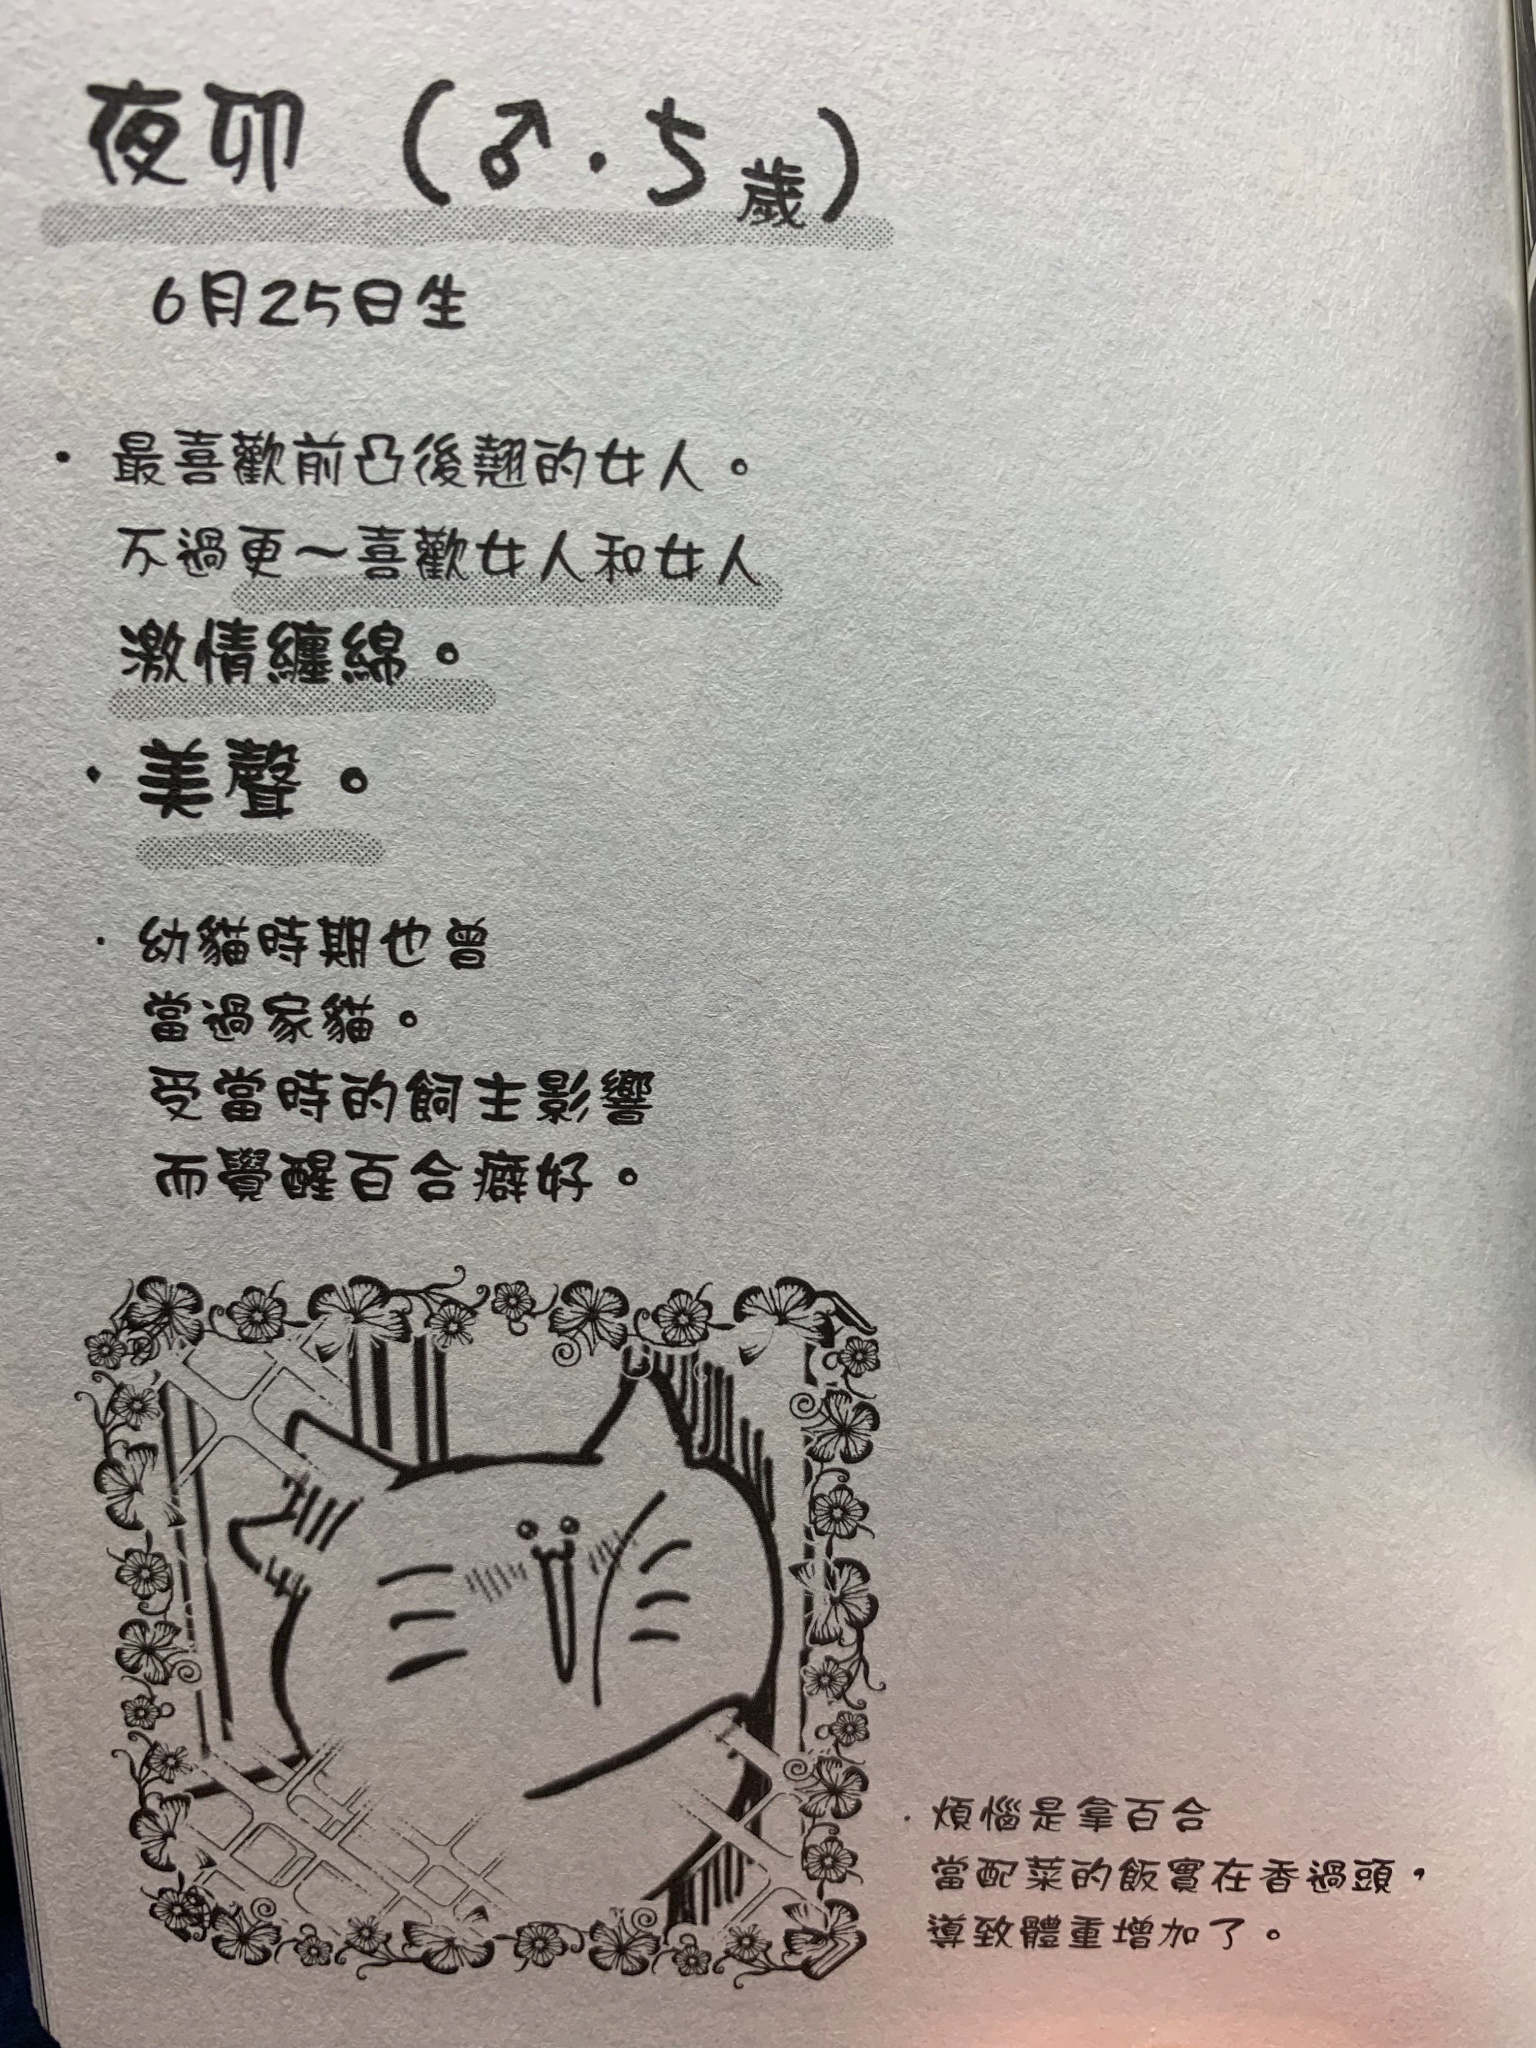 夜卯（♂・5歲）
6月25日生
・最喜歡前凸後翹的女人。
不過更～喜歡女人和女人
激情纏綿。
・美聲。
・幼貓時期也曾
當過家貓。
受當時的飼主影響
而覺醒百合癖好。
・煩惱是拿百合
當配菜的飯實在香過頭，
導致體重增加了。